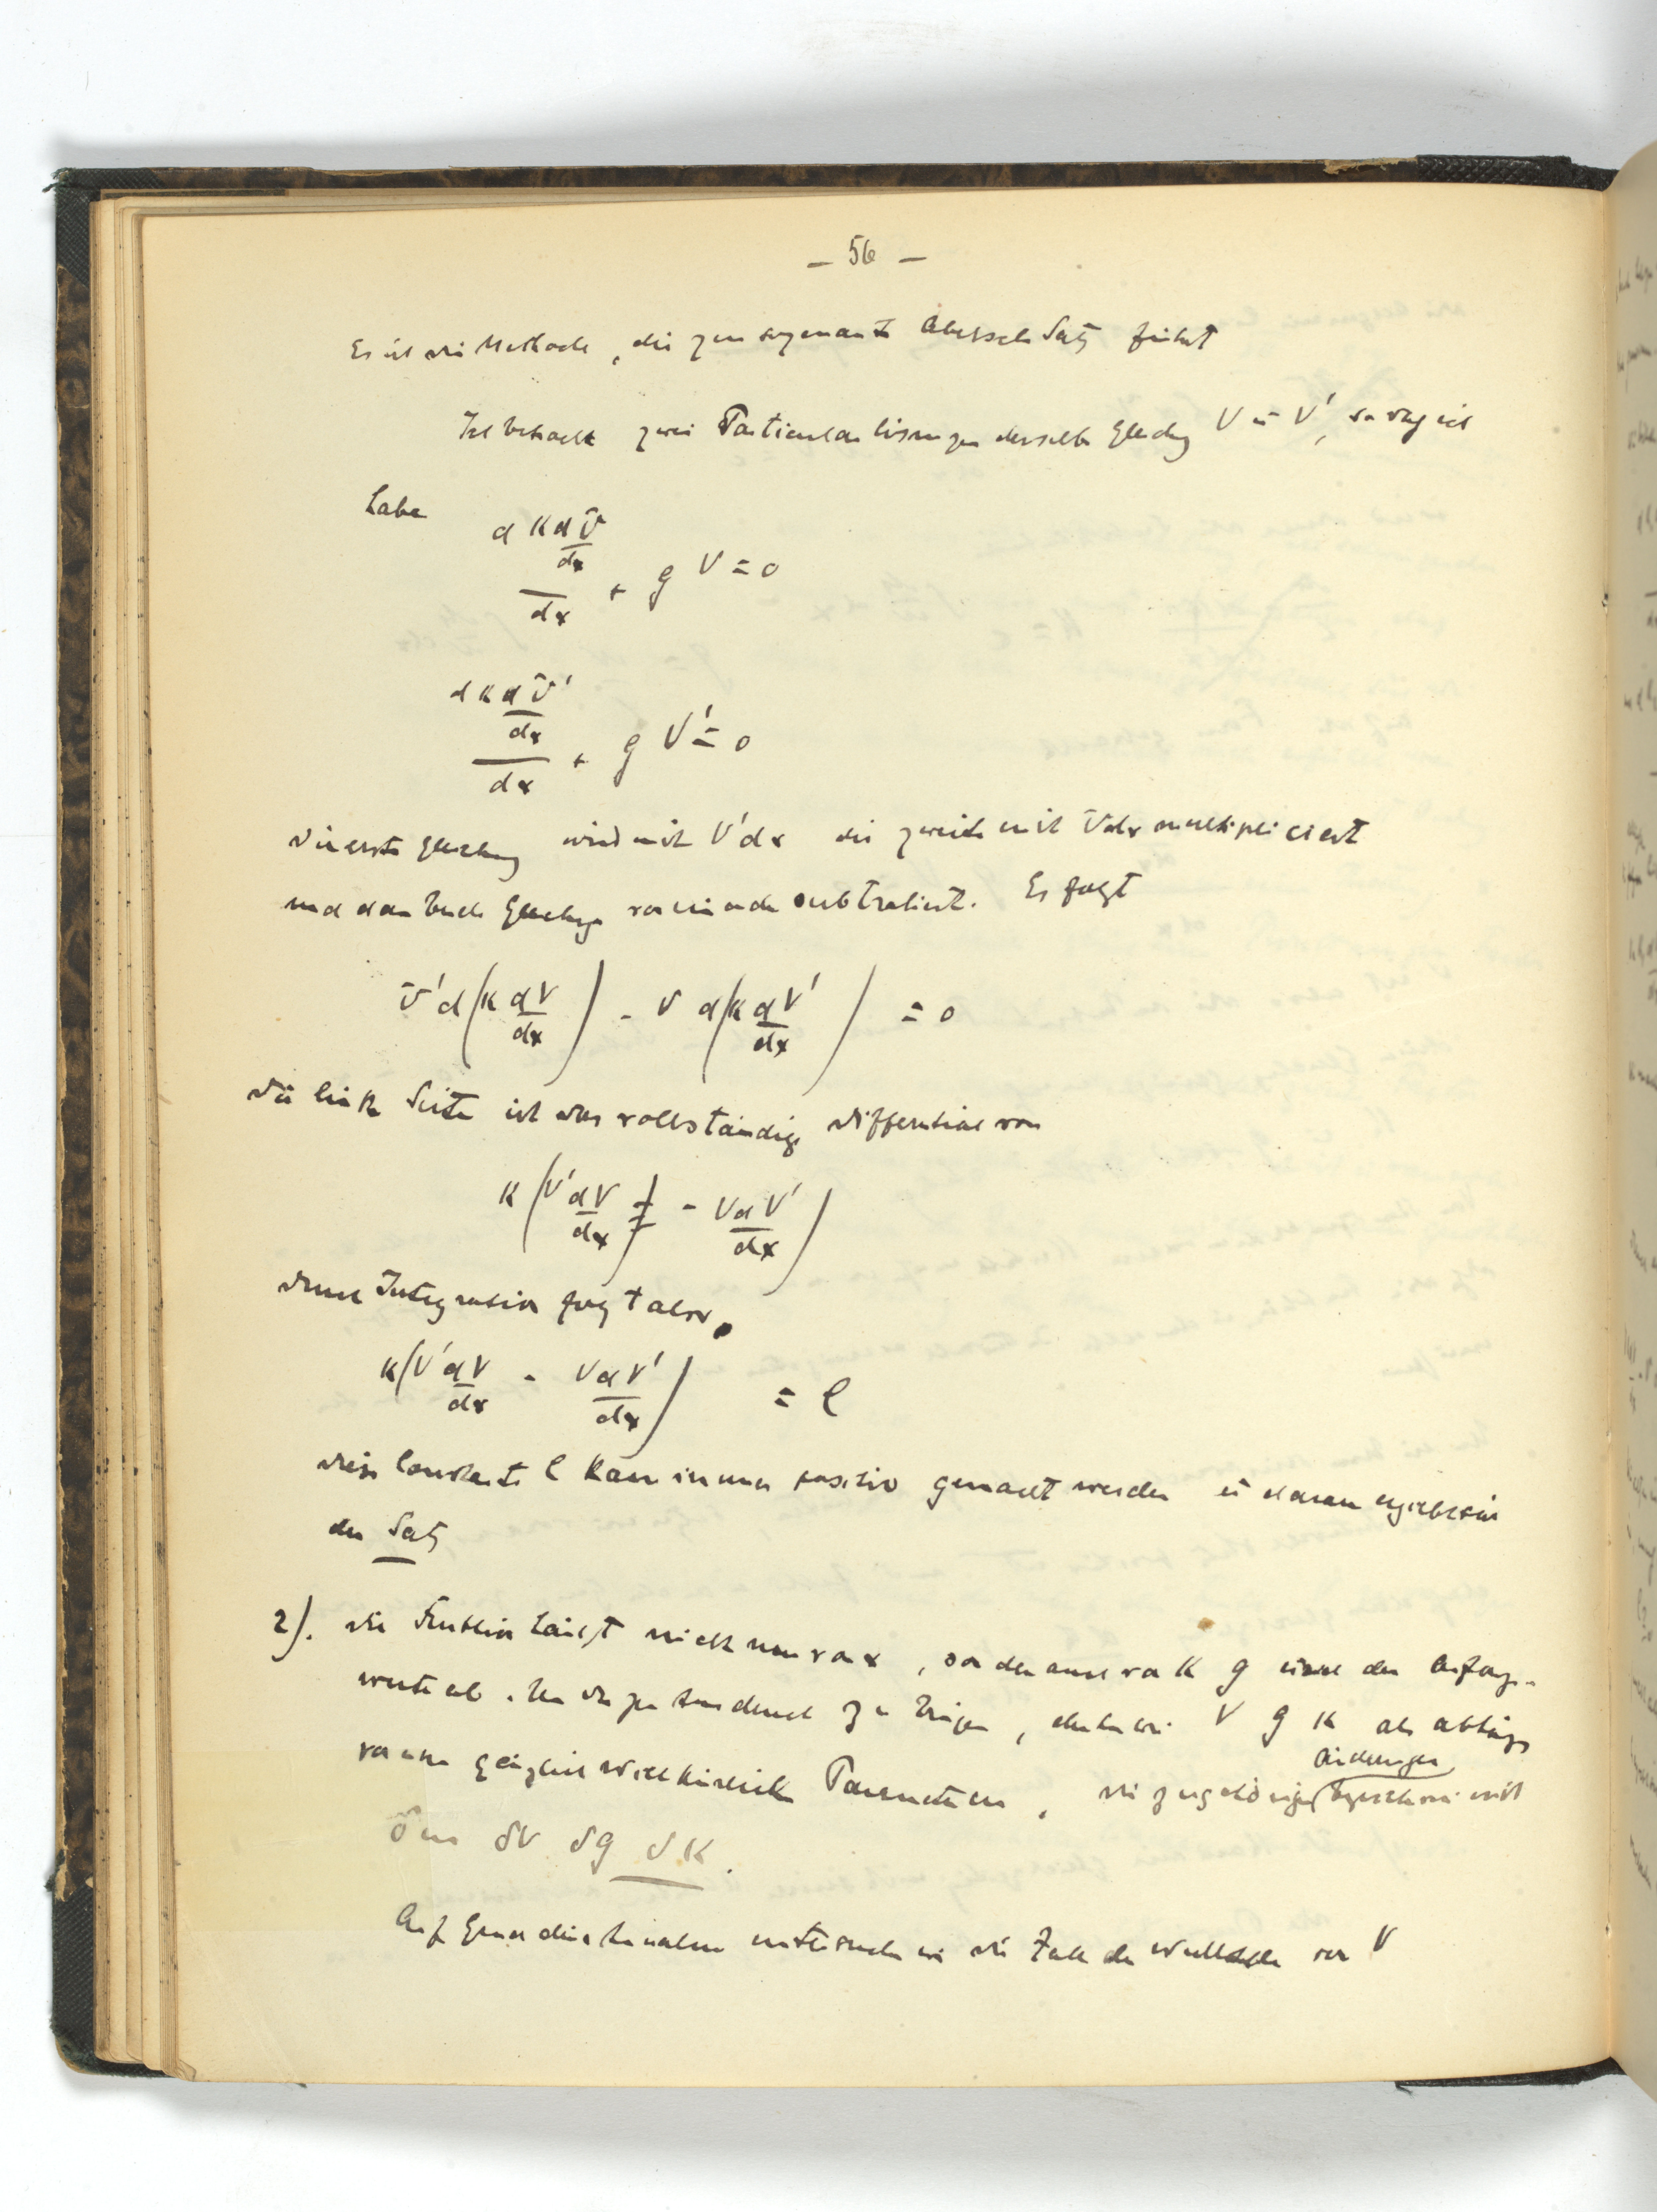 – 56 –
Es ist die Methode, die zum sogenannt Abelschen Satz führt
Ich betracht zwei Particularlösungen derselben Gleichg V u V', so dass ich
habe
d K dV/dx / dx + g V = 0
d K dV'/dx / dx + g V' = 0
Die erste Gleichung wird mit V'dx die zweite mit Vdx multipliciert
und dan beide Gleichungen voneinander subtrahiert. Es folgt
V' d(K dV/dx) - V d(K dV'/dx) = 0
Die linke Seite ist das vollständige Differential von
K (V' dV/dx - V dV'/dx)
durch Integration folgt also
K (V' dV/dx - V dV'/dx) = C
Diese Constante C kann immer positiv gemacht werden u daraus ergiebt sich
der Satz
2). Die Funktion hängt nicht nur von x, sondern auch von K g und den Anfangs-
werte ab. Um das zum Ausdruck zu bringen, denken wir V g K als abhängig
von einem gänzlich willkürlich Parameter m, die zugehörigen
Änderungen
bezeichnen wir mit
δm δV δg δK.
Auf Grund dieser Annahme untersuchen wir die Zahl der Nullstellen von V